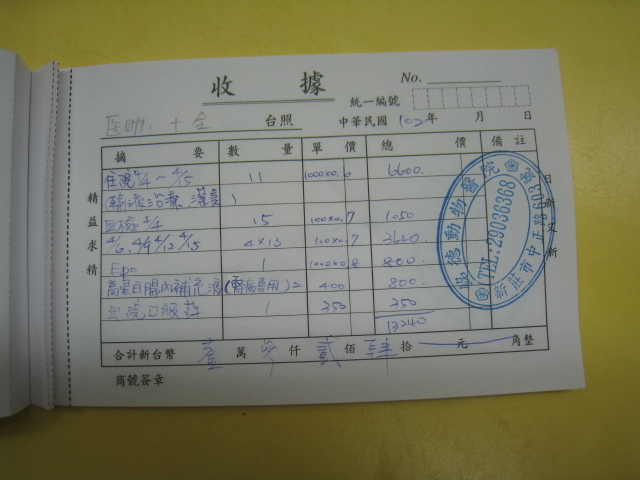 收 據
No.
統一編號
医助: 十全 台照 中華民國 102年 月 日
摘 要 數 量 單 價 總 價 備 註
住院4/4~4/15 11 1000×0.6 6600.
(輸液治療、灌食)
血檢4/4 15 100×0.7 1050
4/6, 4/9 4/12 4/15 4×13 100×0.7 3640
Epo 1 1000×0.8 800.
2 400 800
出院口服藥 1 350 350
13240
合計新台幣 壹 萬 參 仟 貳 佰 肆 拾 元 角整
商號簽章
精益求精
日新又新
德動物醫院
TEL:29036368
新莊市中正路603號